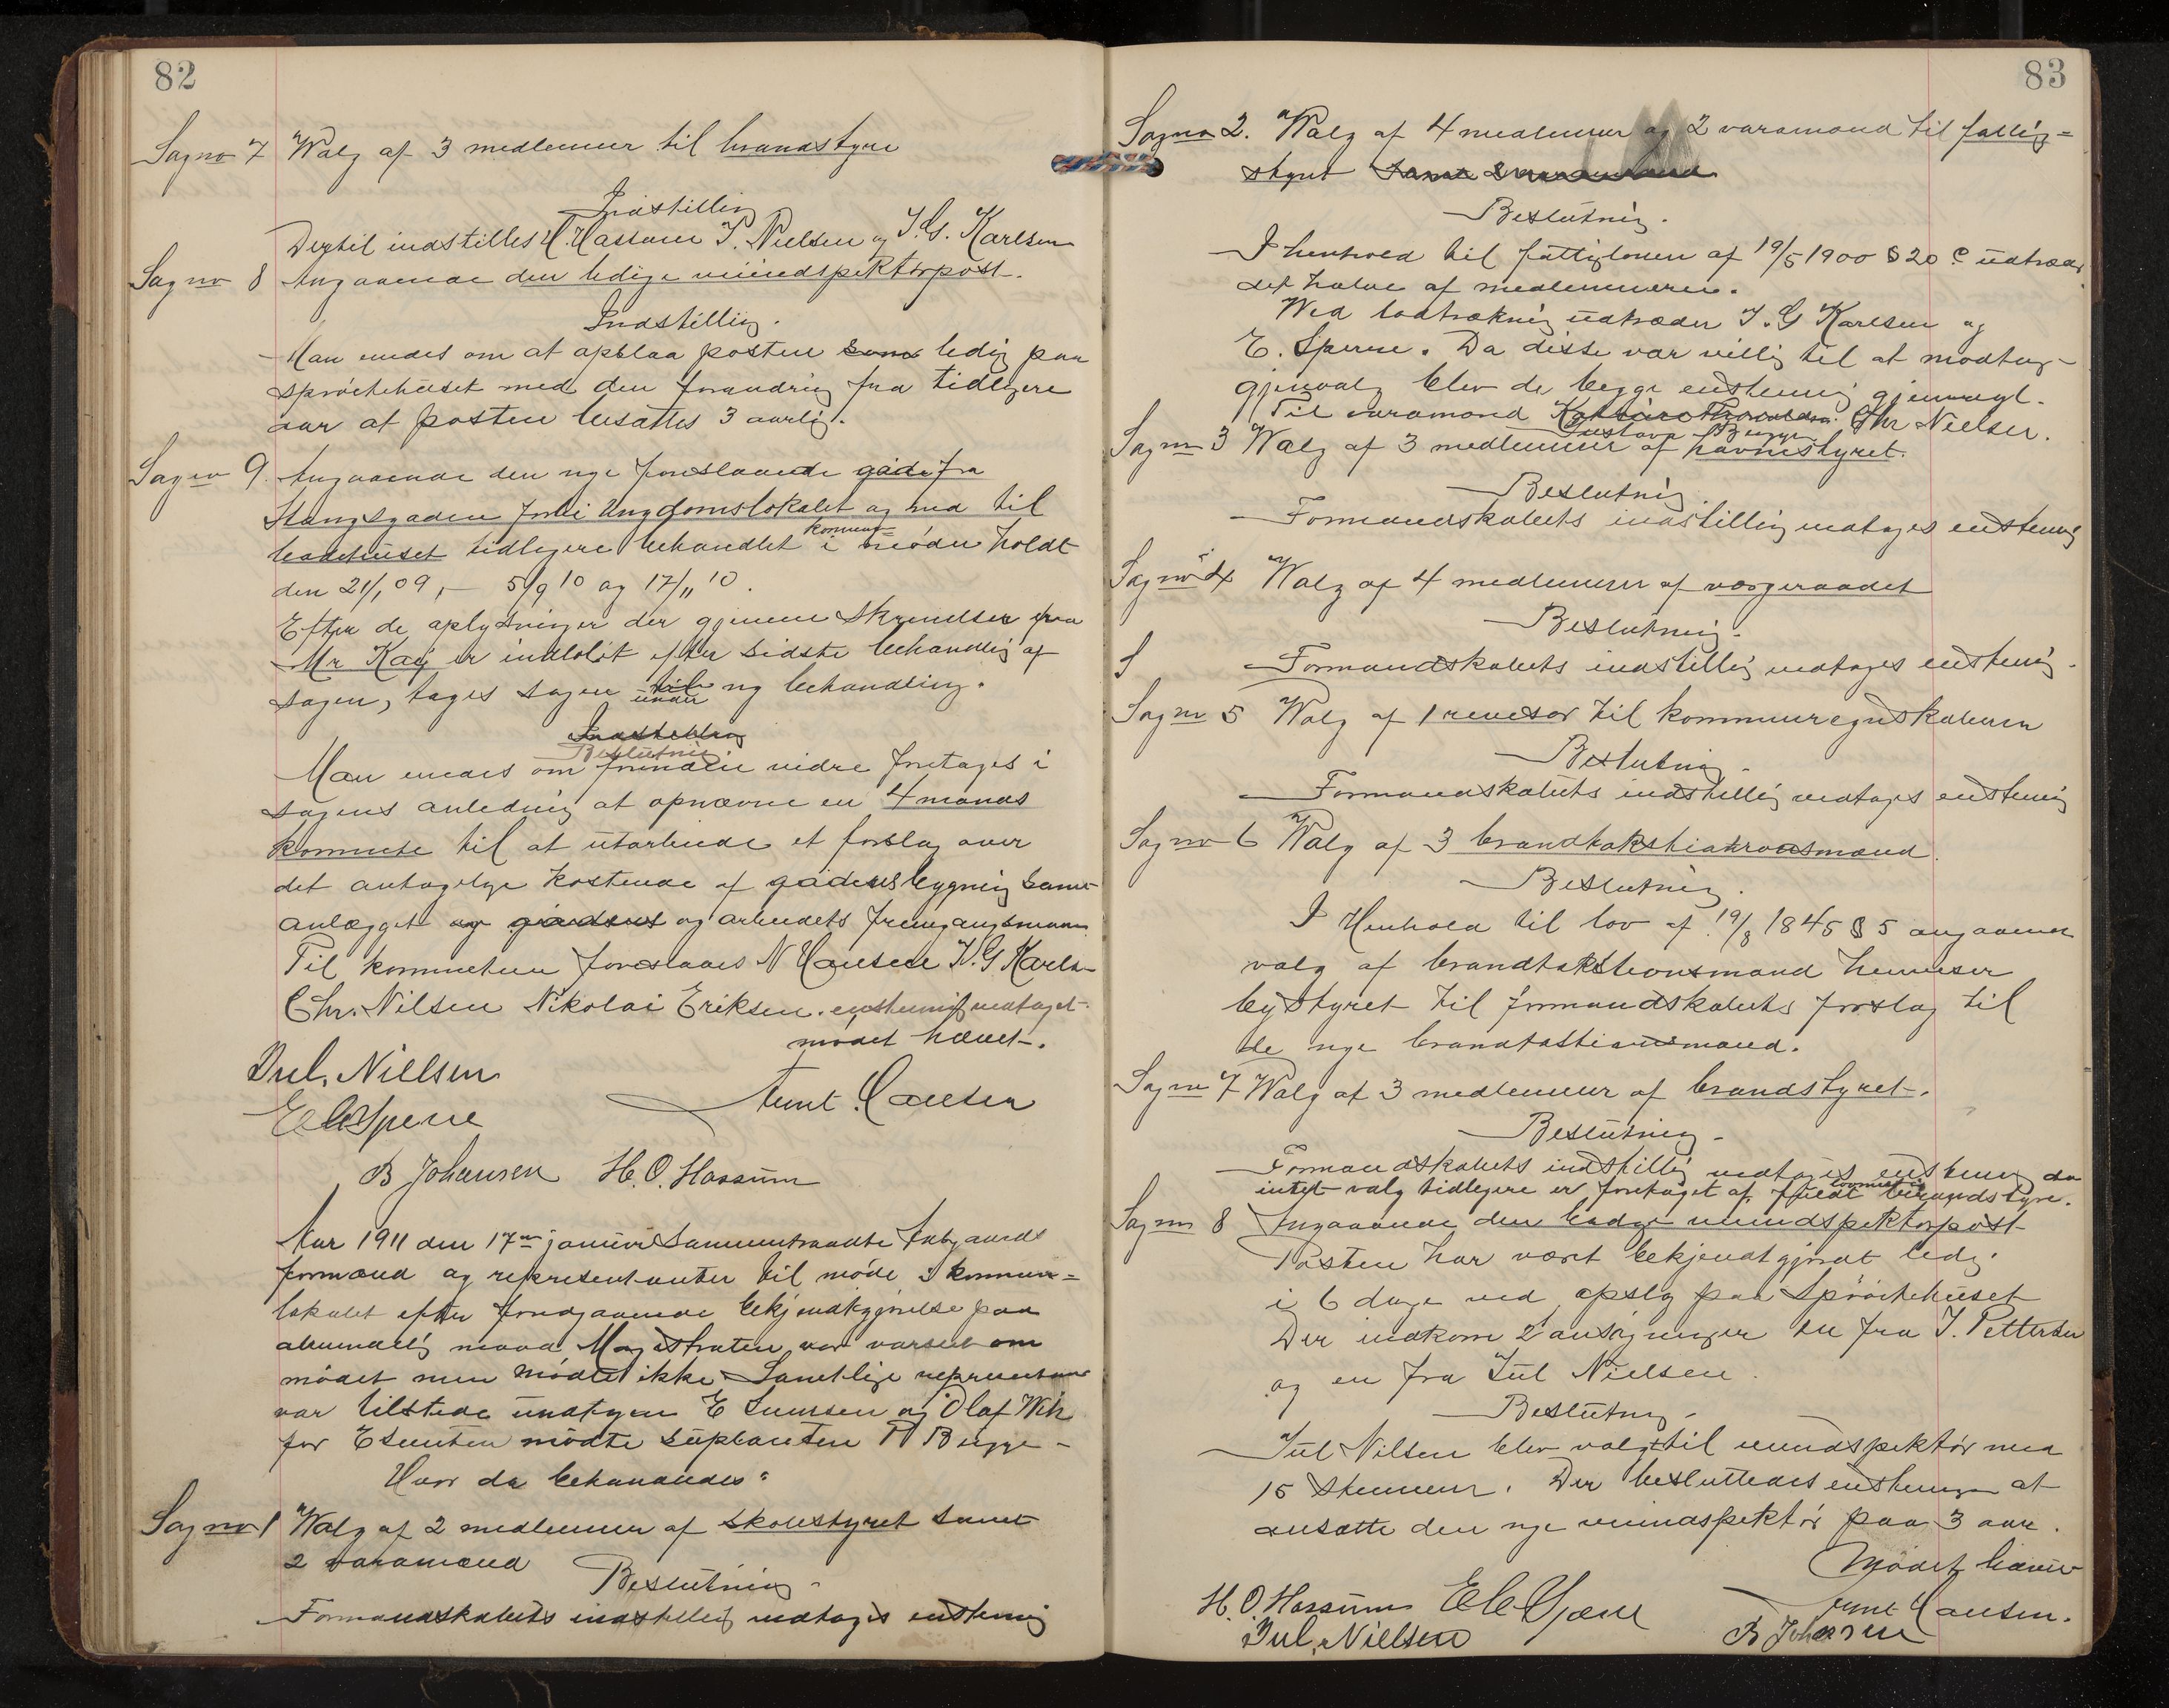 82
Sag no 7 Walg af 3 medlemmer til brandstyre
Indstilling
Dertil indstilles H. Hassum P. Nielsen og I. G. Karlsen
Sag no 8 Angaaende den ledige vininspektørpost.
Indstilling.
Man enedes om at opslaa posten som ledig paa
sprøitehuset med den forandring fra tidligere
aar at posten besættes 3 aarlig.
Sag no 9. Angaaende den nye foreslaaede gade fra
Stangsgaden forbi Ungdomslokalet og ned til
badehuset tidligere behandlet i kommune møder holdt
den 21/1 09, – 5/9 10 og 17/11 10.
Efter de oplysninger der gjennem skrivelser fra
Mr Kay er indløbt efter sidste behandling af
sagen, tages sagen under ny behandling.
Indstilling
Beslutning.
Man enedes om forinden videre foretages i
sagens anledning at opnævne en 4 mands
komite til at utarbeide et forslag over
det antagelige kostende af gadens bygning samt
anlægget og gadens og arbeidets fremgangsmaade
Til komiteen foreslaaes N Hansen I. G Karls-
Chr. Nilsen Nikolai Eriksen. enstemmig vedtaget.
mødet hævet.
Jul. Nielsen
Aunt. Hansen
E C Sperre
B Johansen H. O. Hassum
Aar 1911 den 17de januar sammentraadte Aabygaards
formænd og representanter til møde i kommune=
lokalet efter foregaaende bekjendtgjørelse paa
almindelig maade. Magistraten var varslet om
mødet men mødte ikke. Samtlige representanter
var tilstede undtagen E Iwersen og Olaf Wih
for E Iwersen mødte suplanten P Bugge –
Hvor da behandles:
Sag no 1 Walg af 2 medlemmer af skolestyret samt
2 varamænd
Beslutning.
Formandskabets indstilling vedtages enstemmig
83
Sag no 2. Walg af 4 medlemmer og 2 varamænd til fattig=
styret samt 2 varamænd
Beslutning.
I henhold til fattigloven af 19/5 1900 § 20 c udtræder
det halve af medlemmerne.
Wed lodtrækning udtræder I. G Karlsen og
E. Sperre. Da disse var villig til at modtage
gjenvalg blev de begge enstemmig gjenvalgt.
Til varamænd Gustava Bugge Chr Nielsen.
Sag no 3 Walg af 3 medlemmer af havnestyret.
Beslutning.
Formandskabets indstilling vedtages enstemmig
Sag no 4 Walg af 4 medlemmer af værgeraadet
Beslutning.
S Formandskabets indstilling vedtages enstemmig.
Sag no 5 Walg af 1 revisor til kommuneregnskaberne
Beslutning.
Formandskabets indstillig vedtages enstemmig
Sag no 6 Walg af 3 brandtakstmænd.
Beslutning.
I Henhold til lov af 19/8 1845 § 5 angaaende
valg af brandtakstionsmænd henviser
bystyret til formandskabets forslag til
de nye brandtastionsmænd.
Sag no 7 Walg af 3 medlemmer af brandstyret.
Beslutning.
Formandskabets indstillig vedtages enstemmig da
intet valg tidligere er foretaget af fuldt lovmæssig brandstyre.
Sag no 8 Angaaende den ledige vininspektørpost
Posten har været bekjendtgjordt ledig.
i 6 dage ved opslag paa Sprøitehuset
Der indkom 2 ansøgninger en fra I. Pettersen
og en fra Jul Nielsen.
Beslutning.
Jul Nilsen blev valgt til vininspektør med
15 stemmer. Der besluttedes enstemmig at
ansætte den nye vininspektør paa 3 aar.
Mødet hævet
Aunt Hansen.
H. O. Hassum E C Sperre
Jul. Nielsen B Johansen